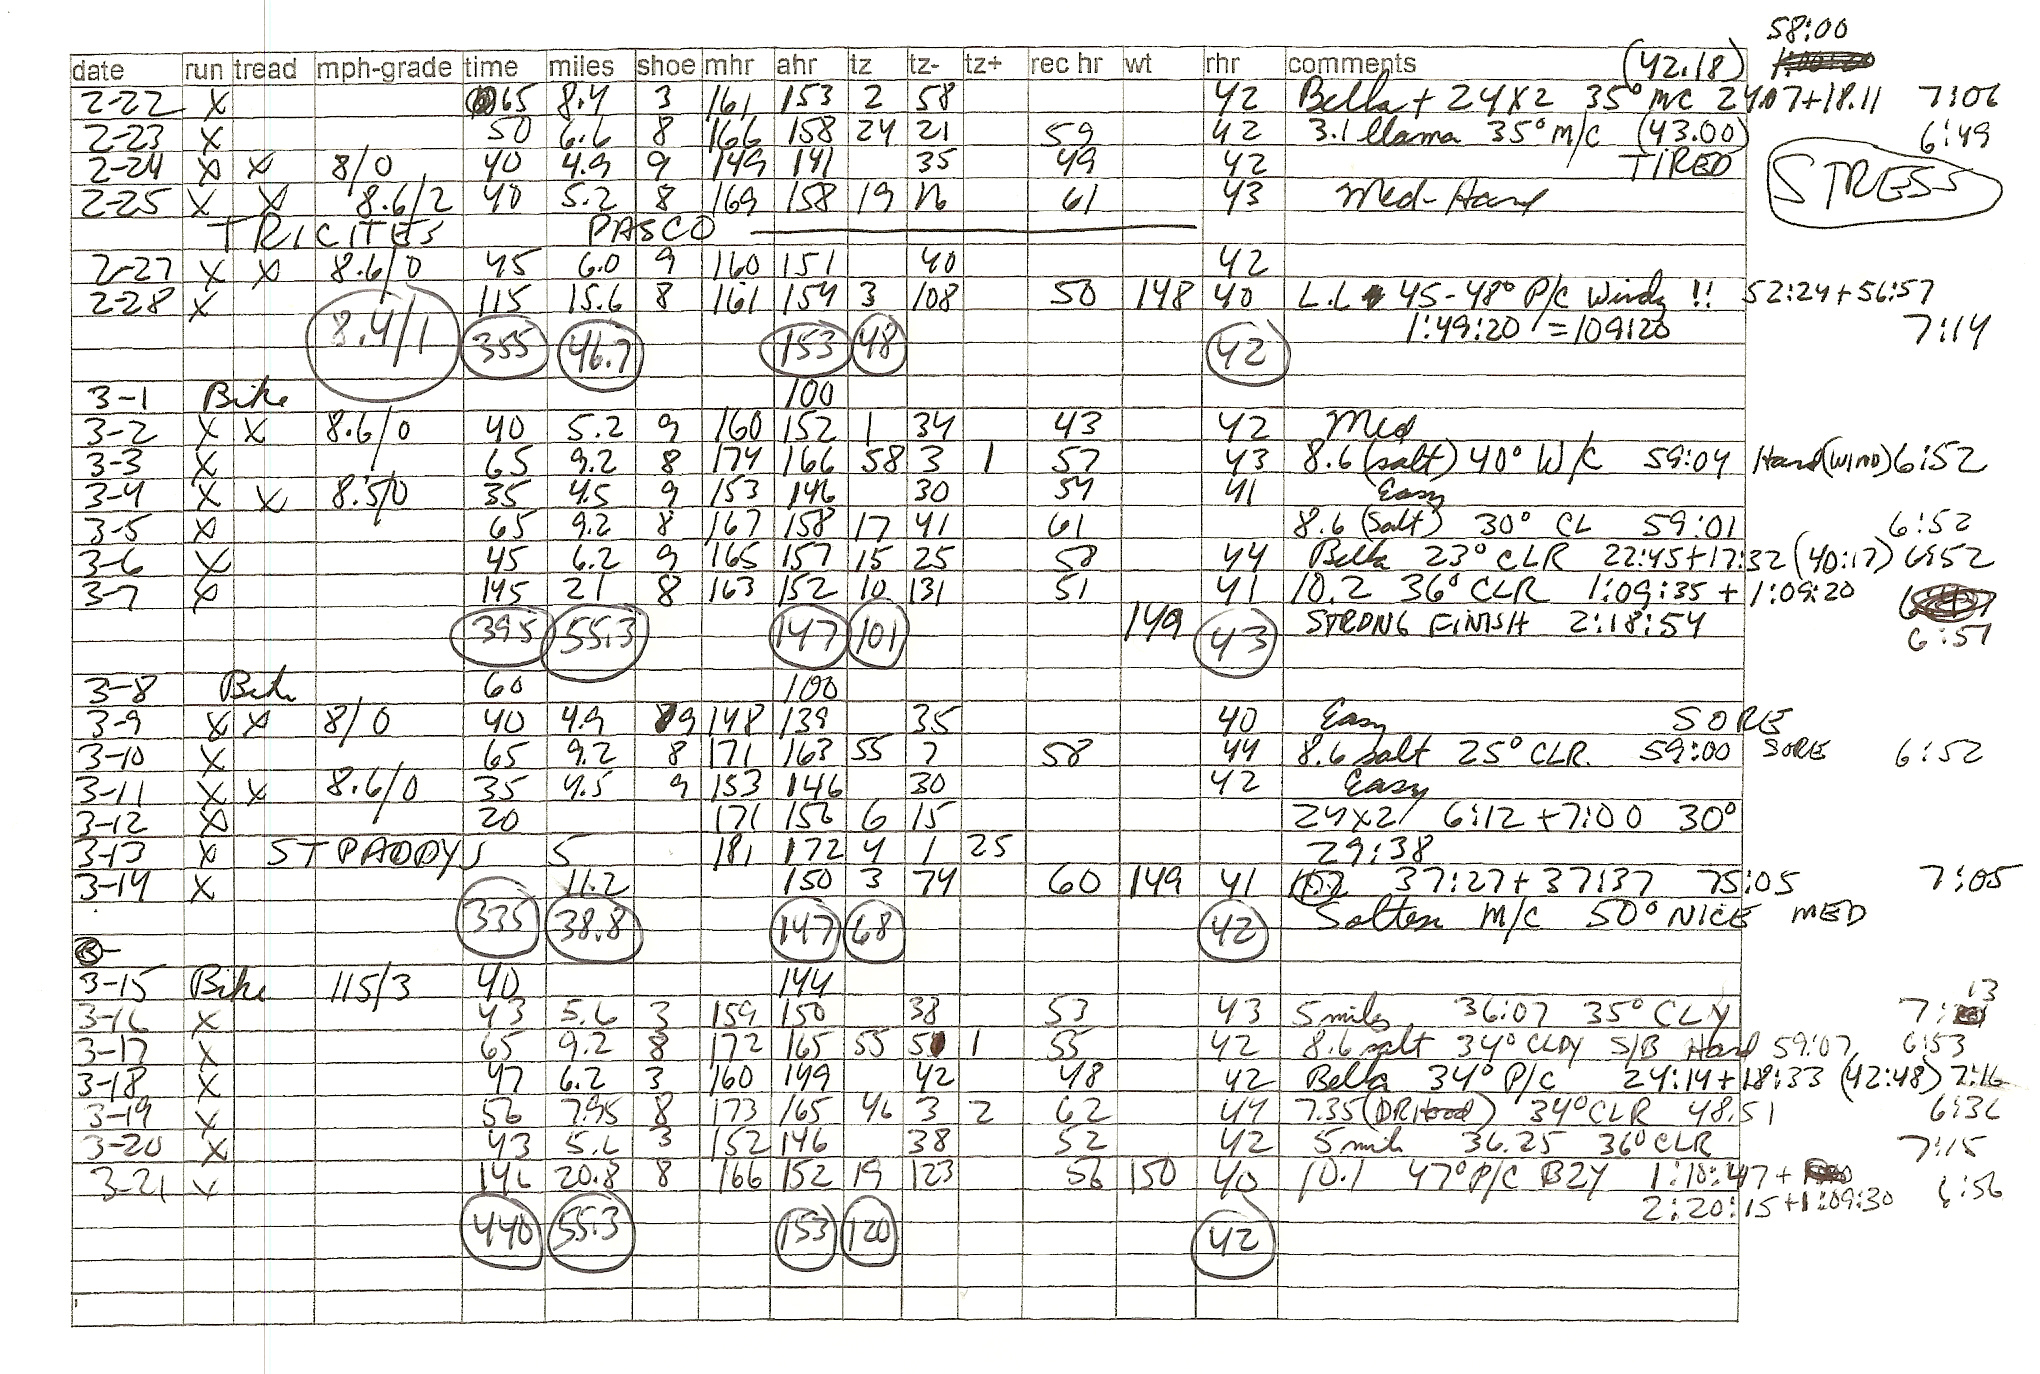 58:00
date run tread mph-grade time miles shoe mhr ahr tz tz- tz+ rec hr wt rhr comments (42.18)
2-22 X 65 8.4 3 161 153 2 58 42 Bella + 24X2 35° M/C 24.07+18.11 7:06
2-23 X 50 6.6 8 166 158 24 21 59 42 3.1 llama 35° M/C (43.00) 6:49
2-24 X X 8/0 40 4.9 9 149 141 35 49 42 TIRED
STRESS
2-25 X X 8.6/2 40 5.2 8 169 158 19 16 61 43 Med-Hard
TRICITES PASCO
2-27 X X 8.6/0 45 6.0 9 160 151 40 42
2-28 X 115 15.6 8 161 154 3 108 50 148 40 L.L 45-48° P/C Windy !! 52:24+56:57
8.4/1 355 46.7 153 48 42 1:49:20 =109:20 7:14
3-1 Bike 100
3-2 X X 8.6/0 40 5.2 9 160 152 1 34 43 42 Med
3-3 X 65 9.2 8 174 166 58 3 1 57 43 8.6 (salt) 40° W/C 59:04 Hard (WIND) 6:52
3-4 X X 8.5/0 35 4.5 9 153 146 30 54 41 Easy
3-5 X 65 9.2 8 167 158 17 41 61 8.6 (Salt) 30° CL 59:01 6:52
3-6 X 45 6.2 9 165 157 15 25 58 44 Bella 23° CLR 22:45+17:32 (40:17) 6:52
3-7 X 145 21 8 163 152 10 131 51 41 10.2 36° CLR 1:09:35 + 1:09:20
395 55.3 147 101 149 43 STRONG FINISH 2:18:54 6:57
3-8 Bike 60 100
3-9 X X 8/0 40 4.9 9 148 139 35 40 Easy SORE
3-10 X 65 9.2 8 171 163 55 7 58 44 8.6 salt 25° CLR. 59:00 SORE 6:52
3-11 X X 8.6/0 35 4.5 9 153 146 30 42 Easy
3-12 X 20 171 156 6 15 24X2 6:12 +7:00 30°
3-13 X ST PADDYS 5 181 172 4 1 25 29:38
3-14 X 11.2 150 3 74 60 149 41 37:27+37:37 75:05 7:05
335 38.8 147 68 42 M/C 50° NICE MED
3-15 Bike 115/3 40 144
3-16 X 43 5.6 3 159 150 38 53 43 5 miles 36:07 35° CLY 7:13
3-17 X 65 9.2 8 172 165 55 5 1 55 42 8.6 salt 34° CLDY S/B Hard 59:07 6:53
3-18 X 47 6.2 3 160 149 42 48 42 Bella 34° P/C 24:14+18:33 (42:48) 7:16
3-19 X 56 7.95 8 173 165 46 3 2 62 44 7.35 34° CLR 48.51 6:36
3-20 X 43 5.6 3 152 146 38 52 42 5 mile 36.25 36° CLR 7:15
3-21 X 146 20.8 8 166 152 19 123 56 150 40 10.1 47° P/C BZY 1:10:47 +
2:20:15 +1:09:30 6:56
440 55.3 153 120 42